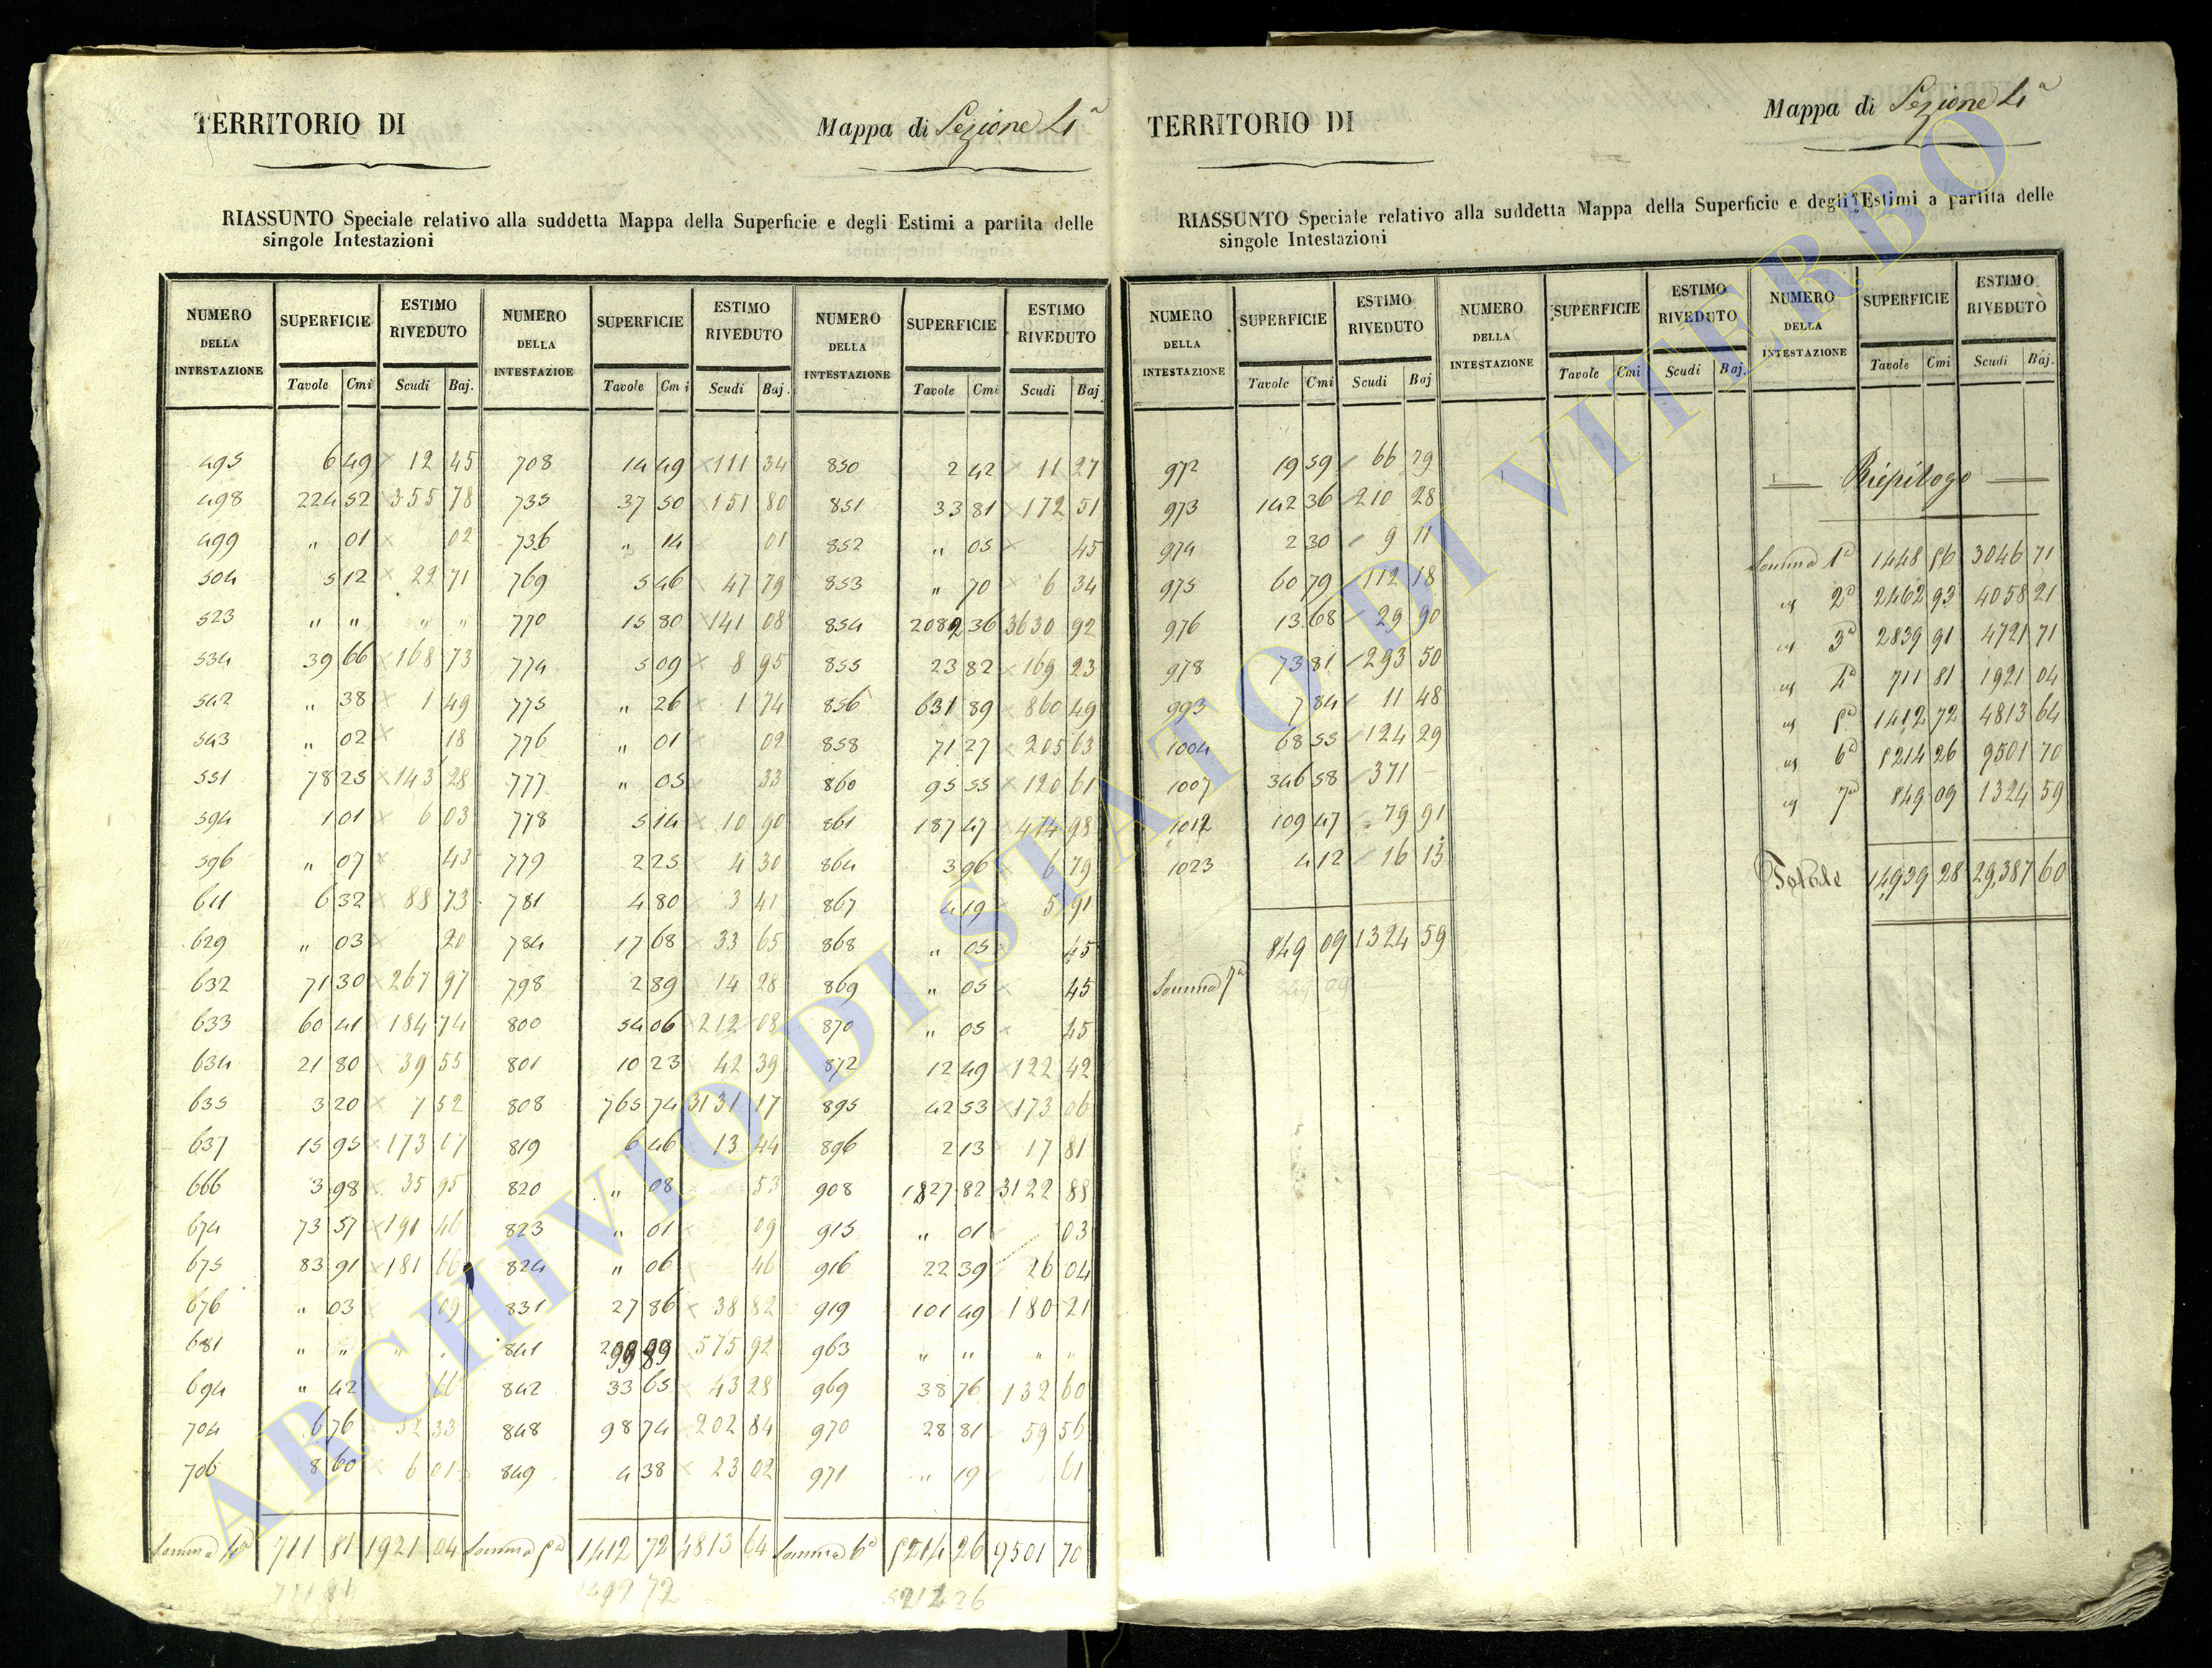 TERRITORIO DI
Mappa di Sezione 4ª
RIASSUNTO Speciale relativo alla suddetta Mappa della Superficie e degli Estimi a partita delle
singole Intestazioni
NUMERO DELLA INTESTAZIONE SUPERFICIE ESTIMO RIVEDUTO NUMERO DELLA INTESTAZIOE SUPERFICIE ESTIMO RIVEDUTO NUMERO DELLA INTESTAZIONE SUPERFICIE ESTIMO RIVEDUTO
Tavole Cmi Scudi Baj. Tavole Cmi Scudi Baj. Tavole Cmi Scudi Baj
495 6 49 × 12 45 708 14 49 × 111 34 850 2 42 × 11 27
498 224 52 × 355 78 735 37 50 × 151 80 851 33 81 × 172 51
499 " 01 × 02 736 " 14 × 01 852 " 05 × 45
504 5 12 × 22 71 769 5 46 × 47 79 853 " 70 × 6 34
523 " " " " 770 15 80 × 141 08 854 2082 36 3630 92
534 39 66 × 168 73 774 5 09 × 8 95 855 23 82 × 169 23
542 " 38 × 1 49 775 " 26 × 1 74 856 631 89 × 860 49
543 " 02 × 18 776 " 01 × 02 858 71 27 × 205 63
551 78 25 × 143 28 777 " 05 × 33 860 95 55 × 120 61
594 1 01 × 6 03 778 5 14 × 10 90 861 187 47 × 474 98
596 " 07 × 43 779 2 25 × 4 30 864 3 96 × 6 79
611 6 32 × 88 73 781 4 80 × 3 41 867 4 19 × 5 91
629 " 03 × 20 784 17 68 × 33 65 868 " 05 × 45
632 71 30 × 267 97 798 2 89 14 28 869 " 05 × 45
633 60 41 × 184 74 800 54 06 × 212 08 870 " 05 × 45
634 21 80 × 39 55 801 10 23 42 39 872 12 49 × 122 42
635 3 20 × 7 52 808 765 74 3131 17 895 42 53 × 173 06
637 15 95 × 173 17 819 6 46 × 13 44 896 2 13 17 81
666 3 98 × 35 95 820 " 08 53 908 1827 82 × 3122 88
674 73 57 × 191 46 823 " 01 × 09 915 " 01 03
675 83 91 × 181 66 824 " 06 46 916 22 39 26 04
676 " 03 × 09 831 27 86 × 38 82 919 101 49 180 21
681 " " " " 841 575 92 963 " " " "
694 " 42 66 842 33 65 × 43 28 969 38 76 132 60
704 6 76 32 33 848 98 74 × 202 84 970 28 81 59 56
706 8 60 6 01 849 4 38 × 23 02 971 " 19 61
Somma 4ª 711 81 1921 04 Somma 5ª 1412 72 4813 64 Somma 6ª 5214 26 9501 70
711 81 5214 26
TERRITORIO DI
Mappa di Sezione 4ª
RIASSUNTO Speciale relativo alla suddetta Mappa della Superficie e degli Estimi a partita delle
singole Intestazioni
NUMERO DELLA INTESTAZIONE SUPERFICIE ESTIMO RIVEDUTO NUMERO DELLA INTESTAZIONE SUPERFICIE ESTIMO RIVEDUTO NUMERO DELLA INTESTAZIONE SUPERFICIE ESTIMO RIVEDUTO
Tavole Cmi Scudi Baj Tavole Cmi Scudi Baj. Tavole Cmi Scudi Baj.
972 19 59 66 79
973 142 36 210 28
974 2 30 9 11
975 60 79 112 18
976 13 68 29 90
978 73 81 293 50
993 7 84 11 48
1004 68 55 124 29
1007 346 58 371 —
1012 109 47 79 91
1023 4 12 16 15
849 09 1324 59
Somma 7ª
Riepilogo
Somma 1ª 1448 56 3046 71
" 2ª 2462 93 4058 21
" 3ª 2839 91 4721 71
" 4ª 711 81 1921 04
" 5ª 1412 72 4813 64
" 6ª 5214 26 9501 70
" 7ª 849 09 1324 59
Totale 14939 28 29,387 60
ARCHIVIO DI STATO DI VITERBO